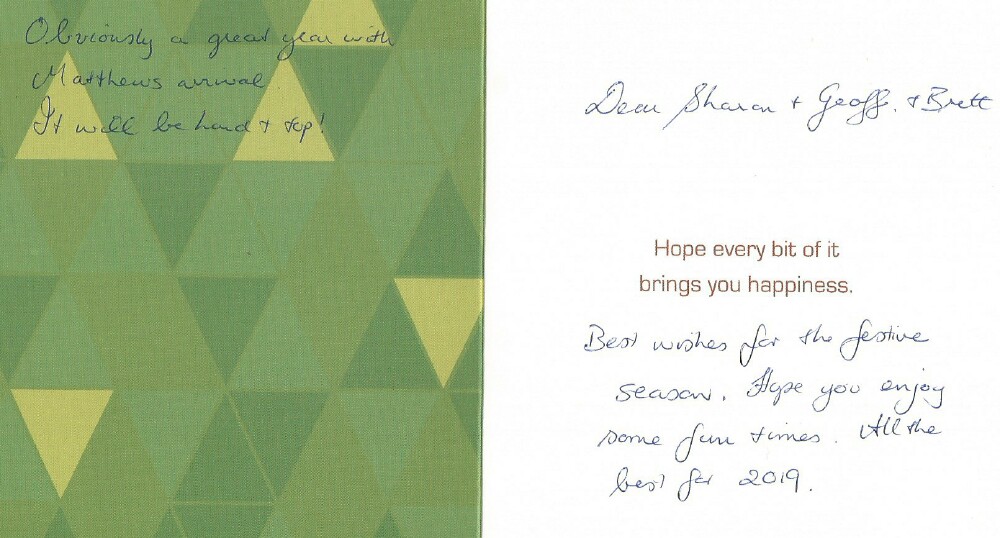 Obviously a great year with
Matthews arrival.
It will be hard + top!
Dear Sharon + Geoff. + Brett
Hope every bit of it
brings you happiness.
Best wishes for the festive
season. Hope you enjoy
some fun times. All the
best for 2019.